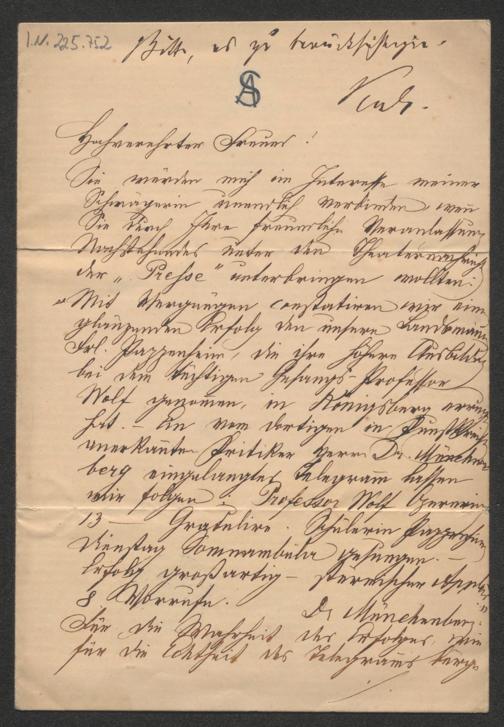 I.N. 225.752
Bitte, es zu berücksichtigen.
AS
Hochverehrter Freund!
Sie würden mich im Interesse meiner
Schwägerin unendlich verbinden wenn
Sie durch Ihre freundliche Veranlassung
Nachstehendes unter den Theaternachricht
der „Presse" unterbringen wollten:
„Mit Vergnügen constatiren wir ein
glänzenden Erfolg den unsere Landsmann
Frl. Pappenheim, die ihre höhere Ausbildu
bei dem tüchtigen Gesangs-Professor
Wolf genomen, in Königsberg errun
hat. – Ein vom dortigen in
anerkannten Kritiker Herrn Dr. München
berg eingelangtes Telegramm lassen
wir folgen: Professor Wolf
13 – Gratulire. Schülerin Pappenheim
Dienstag Somnambula gesungen. –
Erfolg großartig – stürmischer
8 Vorrufe.
Dr Münchenberg."
Für die Wahrheit des Erfolges, wie
für die Echtheit des Telegrams bürge